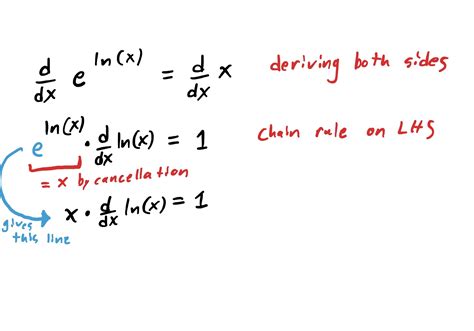 d/dx e^ln(x) = d/dx x deriving both sides
e^ln(x) · d/dx ln(x) = 1 chain rule on LHS
= x by cancellation
x · d/dx ln(x) = 1
gives
this line